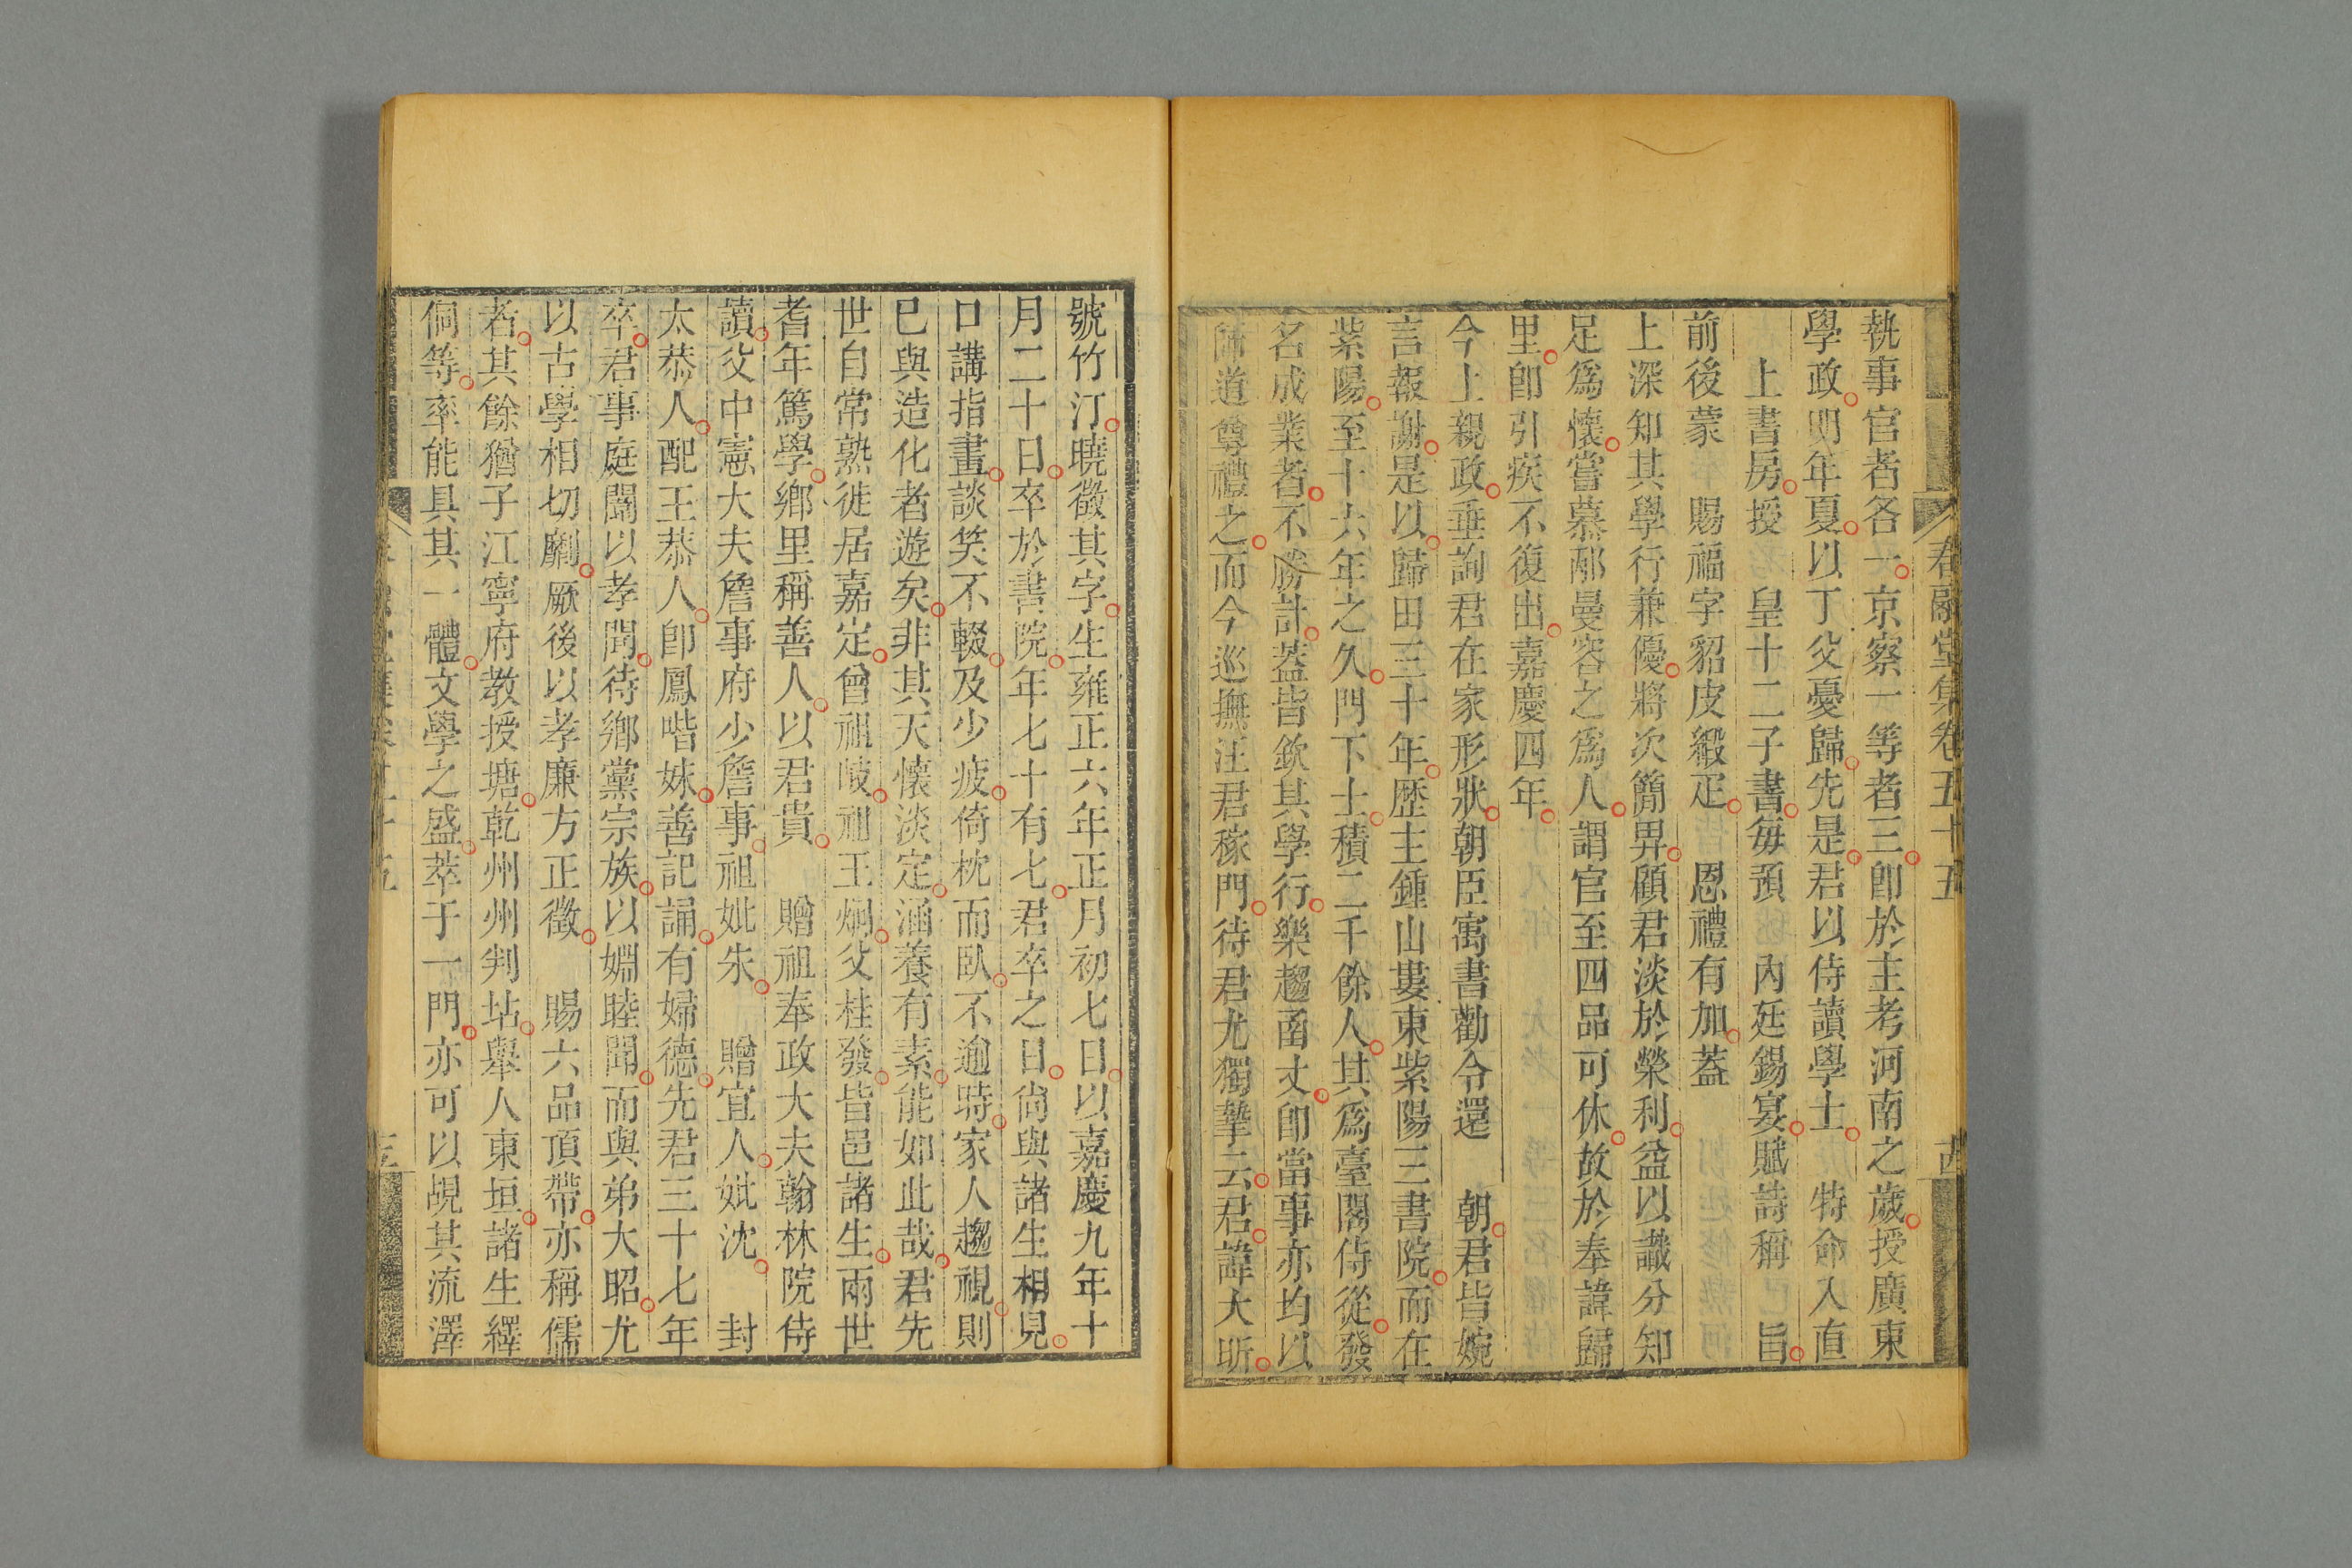 春融堂集卷五十五
執事官者各一京察一等者三卽於主考河南之歲授廣東
學政明年夏以丁父憂歸先是君以侍讀學士 特命入直
上書房授 皇十二子書每預 內廷錫宴賦詩稱 旨
前後蒙 賜福字貂皮緞疋 恩禮有加蓋
上深知其學行兼優將次簡畀顧君淡於榮利益以讖分知
足爲懷嘗慕邴曼容之爲人謂官至四品可休故於奉諱歸
里卽引疾不復出嘉慶四年
今上親政垂詢君在家形狀朝臣寓書勸令還 朝君皆婉
言報謝是以歸田三十年歷主鍾山婁東紫陽三書院而在
紫陽至十六年之久門下士積二千餘人其爲臺閣侍從發
名成業者不勝計蓋皆欽其學行樂趨函丈卽當事亦均以
師道尊禮之而今巡撫汪君稼門待君尤獨摯云君諱大昕
號竹汀曉徵其字生雍正六年正月初七日以嘉慶九年十
月二十日卒於書院年七十有七君卒之日尙與諸生相見
口講指畫談笑不輟及少疲倚枕而臥不逾時家人趨視則
已與造化者遊矣非其天懷淡定涵養有素能如此哉君先
世自常熟徙居嘉定曾祖岐祖王炯父桂發皆邑諸生兩世
耆年篤學鄉里稱善人以君貴 贈祖奉政大夫翰林院侍
讀父中憲大夫詹事府少詹事祖妣朱 贈宜人妣沈 封
太恭人配王恭人卽鳳喈妹善記誦有婦德先君三十七年
卒君事庭闈以孝聞待鄉黨宗族以婣睦聞而與弟大昭尤
以古學相切劘厥後以孝廉方正徵 賜六品頂帶亦稱儒
者其餘猶子江寧府教授塘乾州州判坫舉人東垣諸生繹
侗等率能具其一體文學之盛萃于一門亦可以覘其流澤